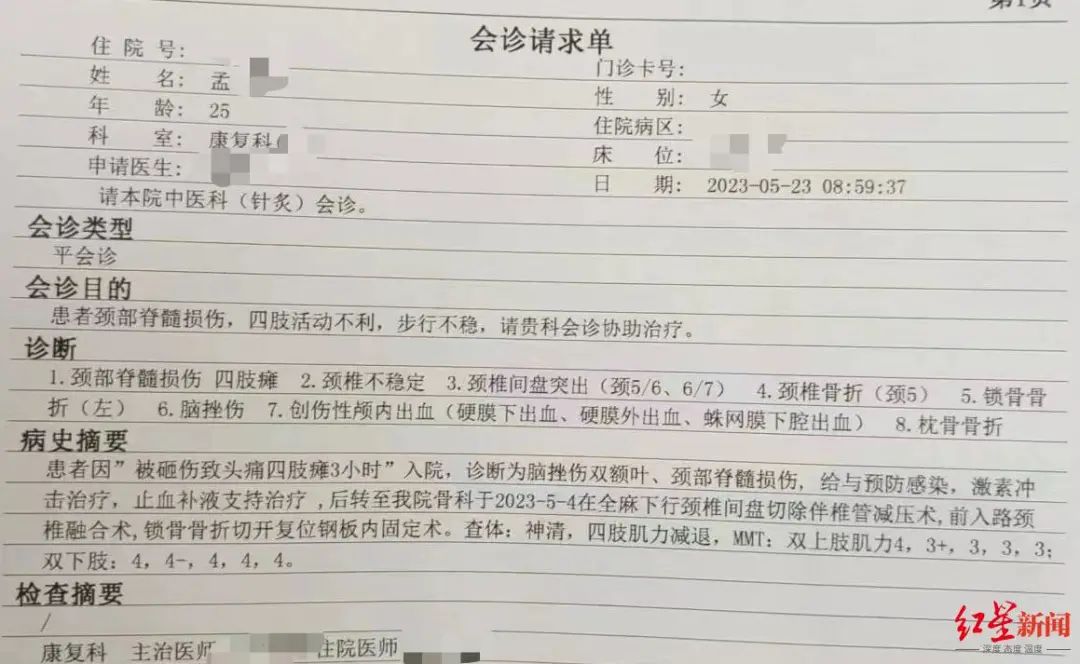 第1页
会诊请求单
住 院 号:
门诊卡号:
姓 名: 孟
性 别: 女
年 龄: 25
住院病区:
科 室: 康复科
床 位:
申请医生:
日 期: 2023-05-23 08:59:37
请本院中医科（针灸）会诊。
会诊类型
平会诊
会诊目的
患者颈部脊髓损伤，四肢活动不利，步行不稳，请贵科会诊协助治疗。
诊断
1.颈部脊髓损伤 四肢瘫 2.颈椎不稳定 3.颈椎间盘突出（颈5/6、6/7） 4.颈椎骨折（颈5） 5.锁骨骨
折（左） 6.脑挫伤 7.创伤性颅内出血（硬膜下出血、硬膜外出血、蛛网膜下腔出血） 8.枕骨骨折
病史摘要
患者因"被砸伤致头痛四肢瘫3小时"入院，诊断为脑挫伤双额叶、颈部脊髓损伤，给与预防感染，激素冲
击治疗，止血补液支持治疗 ,后转至我院骨科于2023-5-4在全麻下行颈椎间盘切除伴椎管减压术,前入路颈
椎融合术,锁骨骨折切开复位钢板内固定术。查体：神清，四肢肌力减退，MMT：双上肢肌力4，3+，3，3，3；
双下肢：4，4-，4，4，4。
检查摘要
/
康复科 主治医师 住院医师
红星新闻
深度 高度 温度